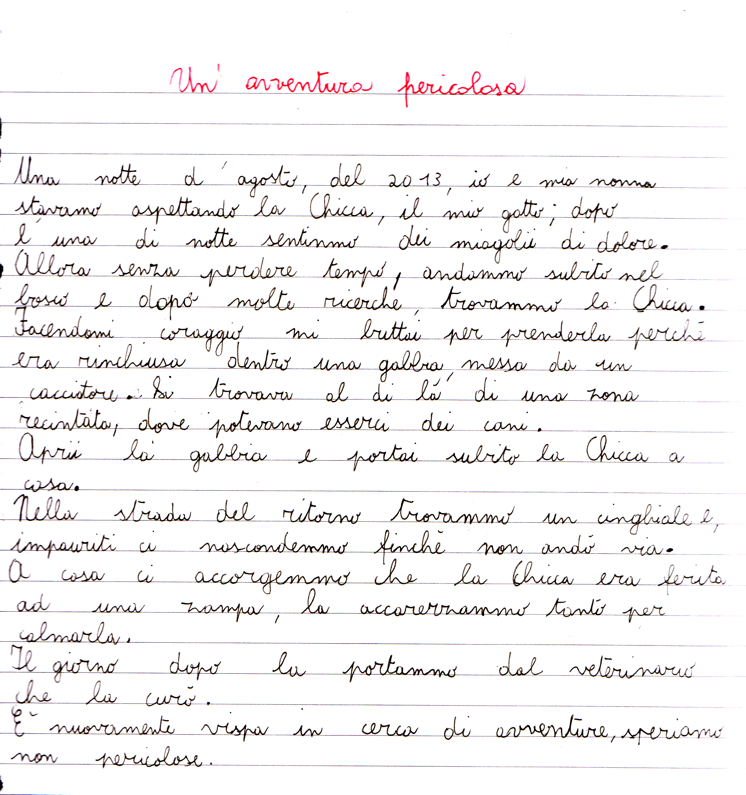 Un' avventura pericolosa
Una notte d' agosto, del 2013, io e mia nonna
stavamo aspettando la Chicca, il mio gatto; dopo
l' una di notte sentimmo dei miagolii di dolore.
Allora senza perdere tempo, andammo subito nel
bosco e dopo molte ricerche, trovammo la Chicca.
Facendomi coraggio mi buttai per prenderla perchè
era rinchiusa dentro una gabbia, messa da un
cacciatore. Si trovava al di là di una zona
recintata, dove potevano esserci dei cani.
Aprii la gabbia e portai subito la Chicca a
casa.
Nella strada del ritorno trovammo un cinghiale e,
impauriti ci nascondemmo finchè non andò via.
A casa ci accorgemmo che la Chicca era ferita
ad una zampa, la accarezzammo tanto per
calmarla.
Il giorno dopo la portammo dal veterinario
che la curò.
È nuovamente vispa in cerca di avventure, speriamo
non pericolose.